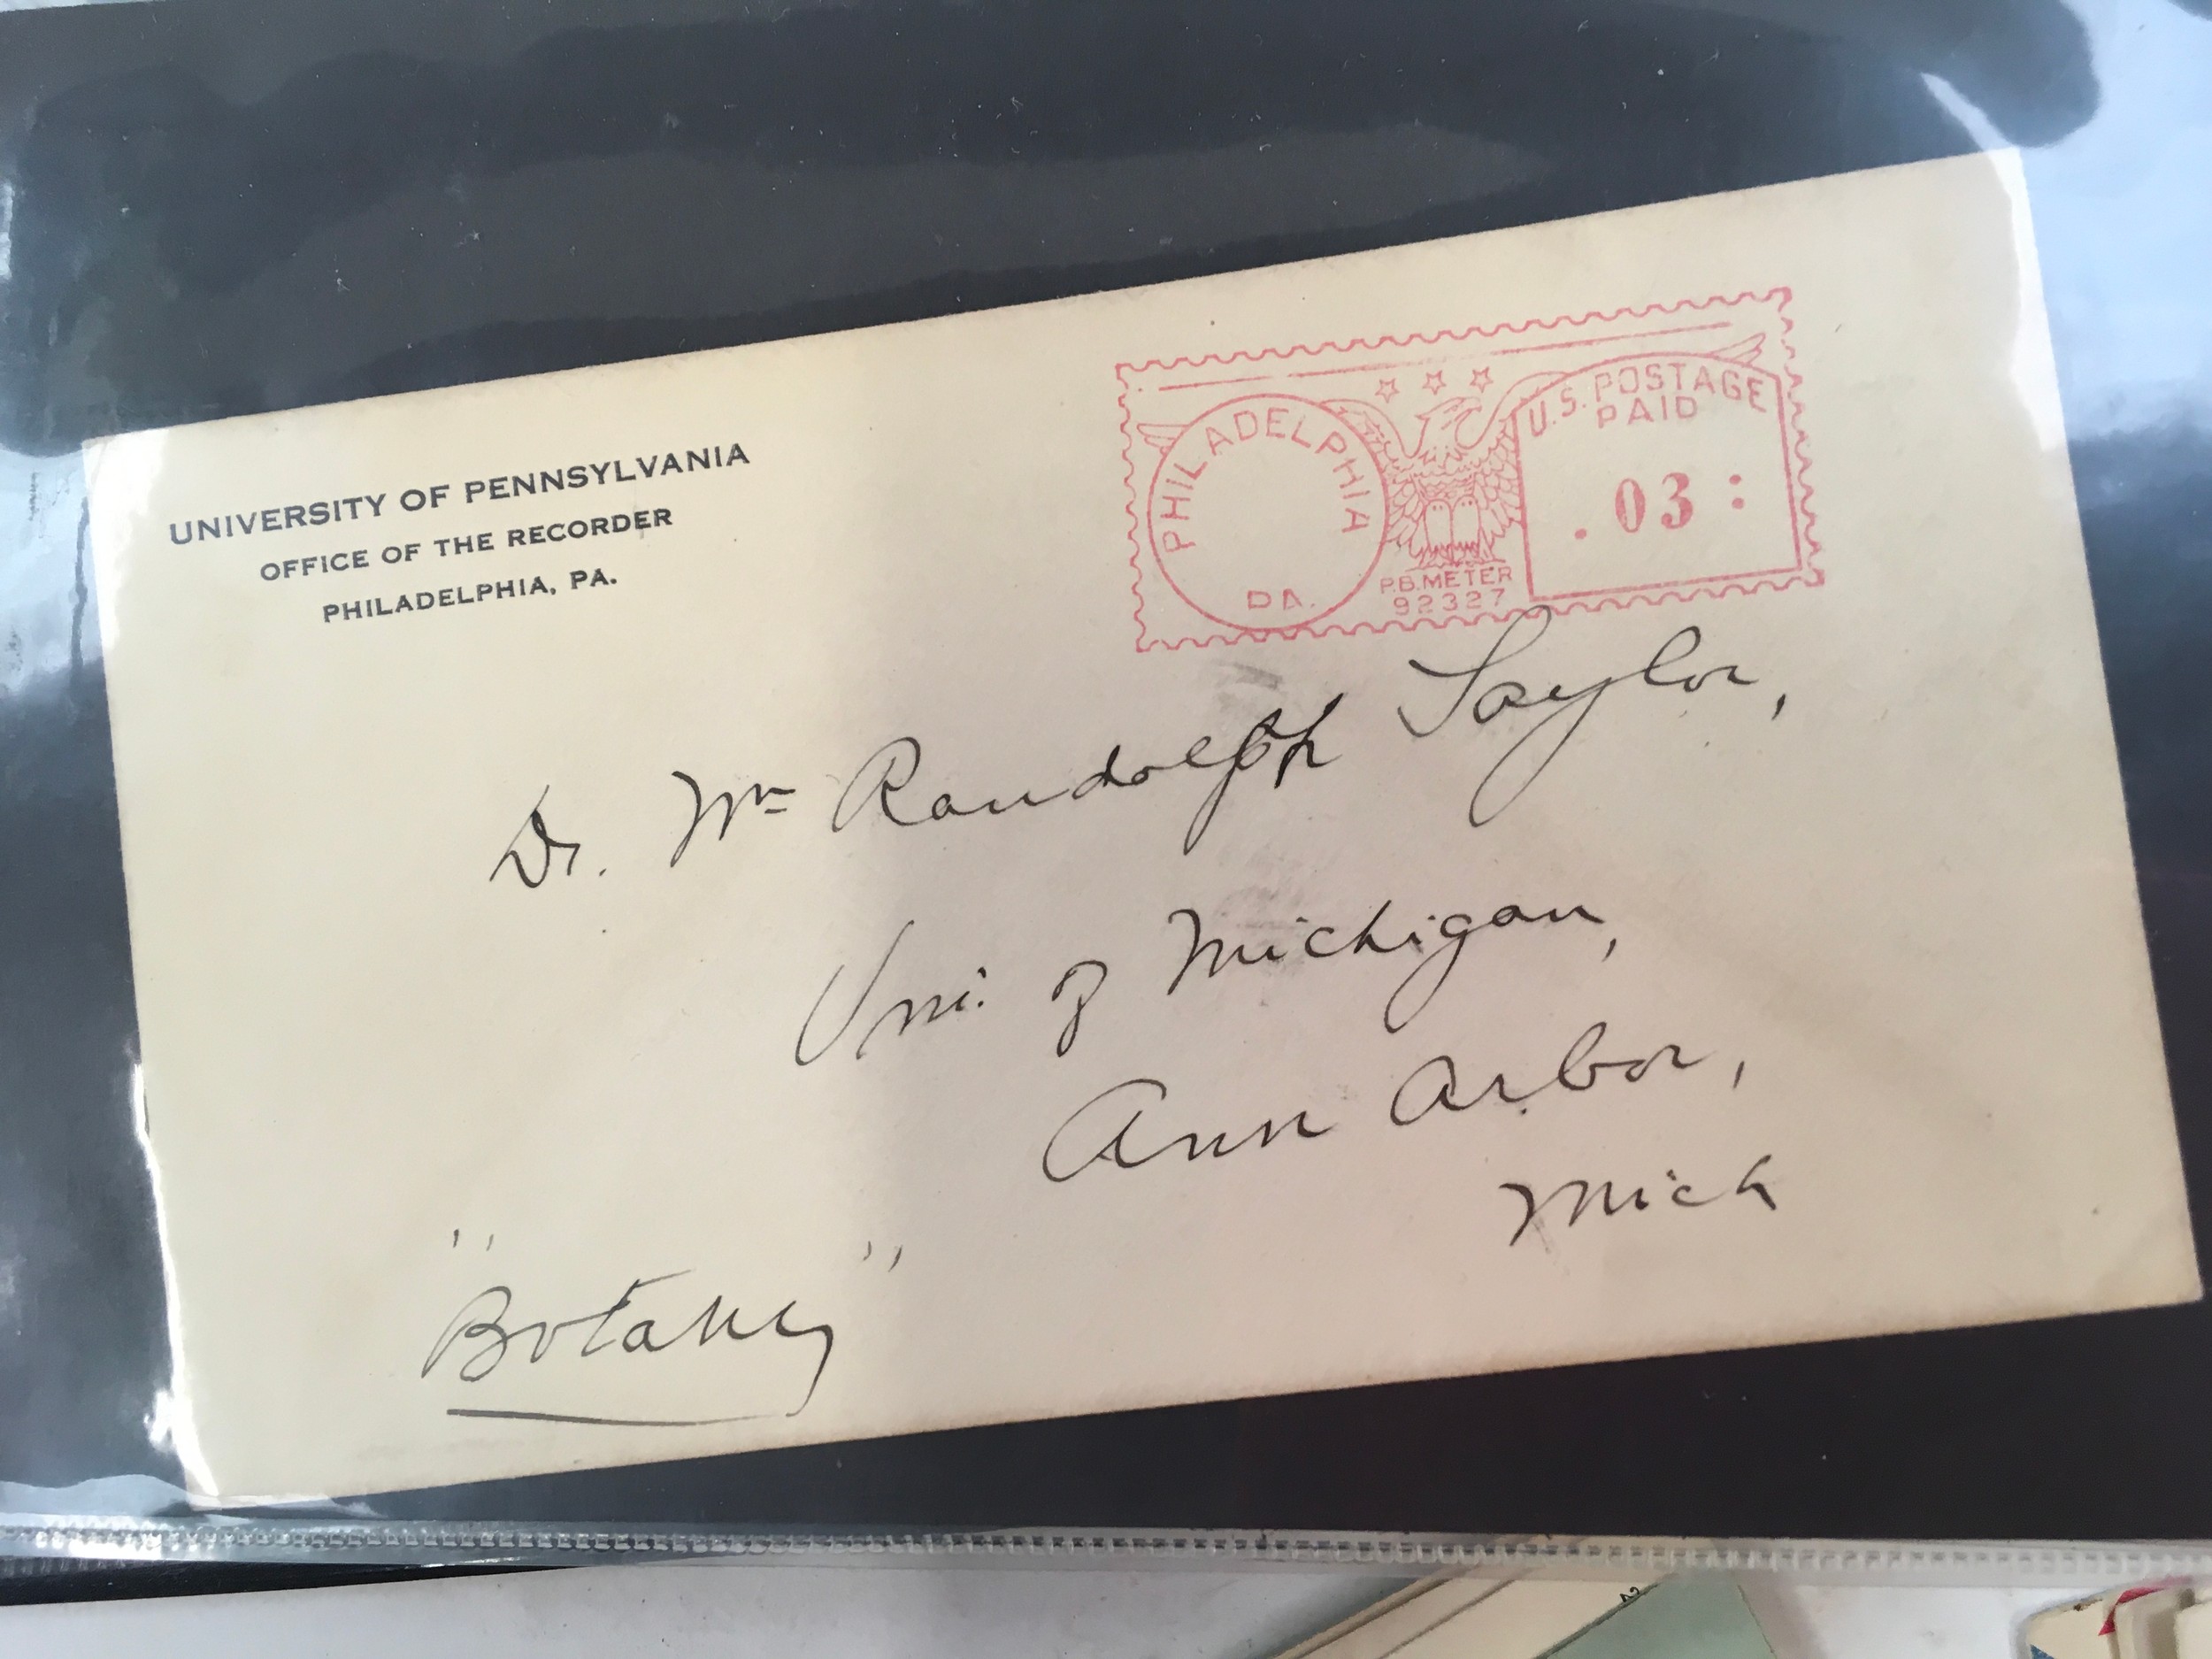 UNIVERSITY OF PENNSYLVANIA
OFFICE OF THE RECORDER
PHILADELPHIA, PA.
PHILADELPHIA
PA.
P.B. METER
92327
U.S. POSTAGE
PAID
.03:
Dr. Wm Randolph Taylor,
Uni. of Michigan,
Ann Arbor,
Mich
"Botany"